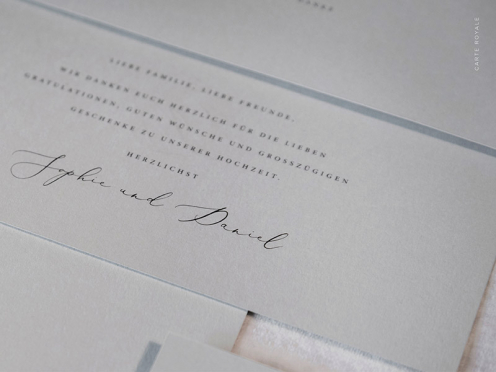 CARTE ROYALE
LIEBE FAMILIE, LIEBE FREUNDE,
WIR DANKEN EUCH HERZLICH FÜR DIE LIEBEN
GRATULATIONEN, GUTEN WÜNSCHE UND GROSSZÜGIGEN
GESCHENKE ZU UNSERER HOCHZEIT.
HERZLICHST
Sophie und Daniel